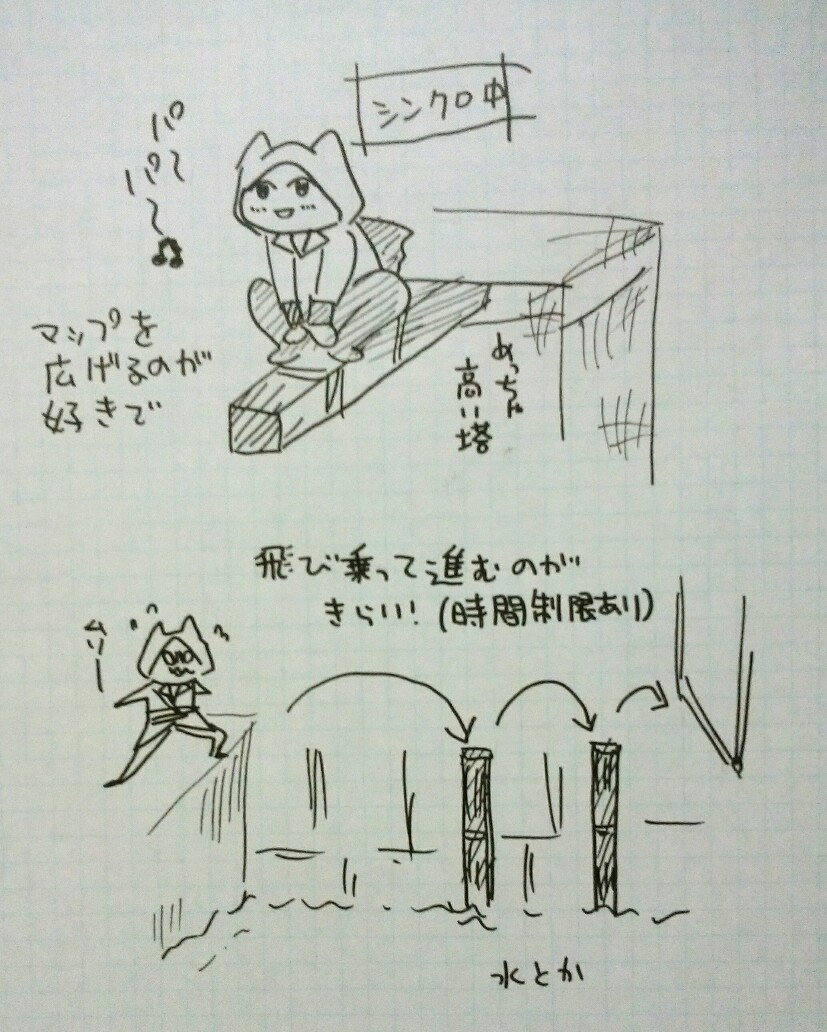 シンクロ中
パ〜
パ〜
マップを
広げるのが
好きで
めっちゃ
高い塔
飛び乗って進むのが
きらい!(時間制限あり)
ムリー
水とか